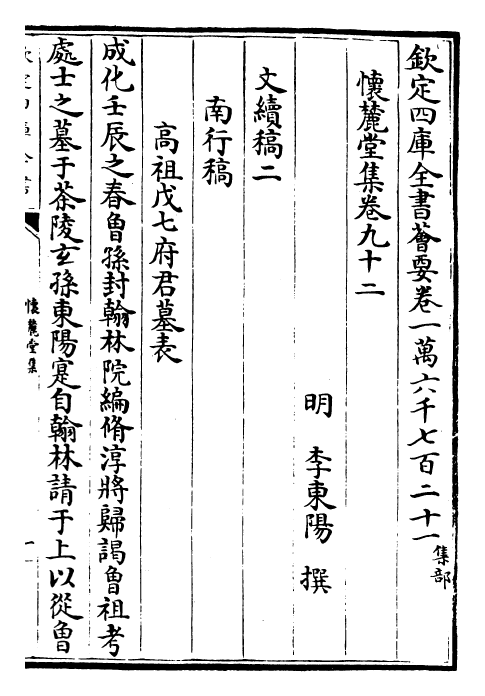 欽定四庫全書薈要卷一萬六千七百二十一集部
懷麓堂集卷九十二
明 李東陽 撰
文續稿二
南行稿
高祖戊七府君墓表
成化壬辰之春曾孫封翰林院編脩淳將歸謁曾祖考
處士之墓于茶陵玄孫東陽寔自翰林請于上以從曾
懷麓堂集
一